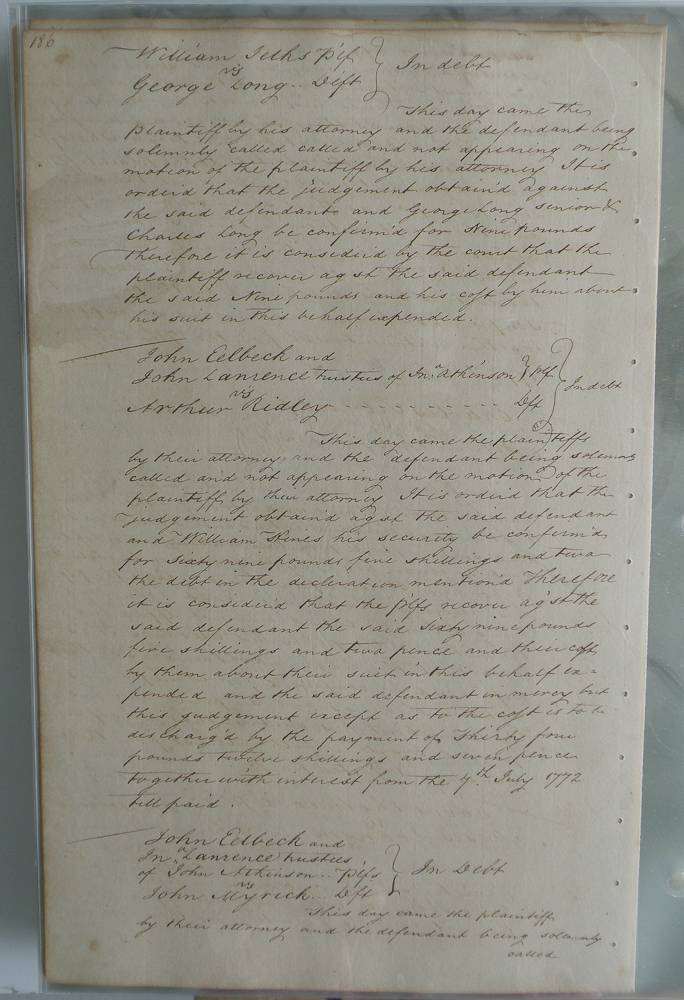 186
William Selks Plf
vs
George Long .. Deft } In debt
This day came the
plaintiff by his attorney and the defendant being
solemnly called called and not appearing on the
motion of the plaintiff by his attorney It is
orderd that the judgement obtain'd against
the said defendant and George Long senior &
Charles Long be confirm'd for Nine pounds
therefore it is considerd by the court that the
plaintiff recover agst the said defendant
the said Nine pounds and his cost by him about
his suit in this behalf expended.
John Edbeck and
John Lanrence trustees of Jno. Atkinson } Plf
vs
Arthur Ridley - - - - - - - - - - Dft } In debt
This day came the plaintiffs
by their attorney and the defendant being solemnly
called and not appearing on the motion of the
plaintiff by their attorney It is orderd that the
judgement obtain'd agst the said defendant
and William Hines his security be confirm'd
for Sixty nine pounds five shillings and two
the debt in the decleration mention'd Therefore
it is considerd that the plfs recover ag'st the
said defendant the said Sixty nine pounds
five shillings and two pence and their cost
by them about their suit in this behalf ex=
pended and the said defendant in mercy but
this judgement except as to the cost is to be
discharg'd by the payment of Thirty four
pounds twelve shillings and seven pence
together with interest from the 7th July 1772
till paid.
John Edbeck and
Jno. Lanrence trustees
of John Atkinson .. Plfs
vs
John Myrick .. Dft } In Debt
This day came the plaintiff
by their attorney and the defendant being solemnly
called